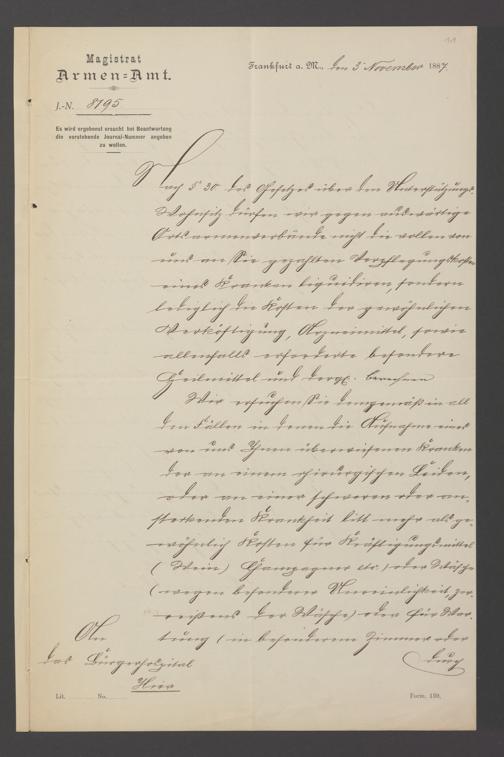 11
Magistrat
Armen=Amt.
Frankfurt a. M., den 3 November 1887.
J.-N. 8795
Es wird ergebenst ersucht bei Beantwortung
die vorstehende Journal-Nummer angeben
zu wollen.
Nach § 30 des Gesetzes über den Unterstützungs-
Wohnsitz dürfen wir gegen auswärtige
Ortsarmenverbände nicht die vollen von
uns an Sie gezahlten Verpflegungskosten
eines Kranken liquidiren, sondern
lediglich die Kosten der gewöhnlichen
Verköstigung, Arzneimittel, sowie
allenfalls erforderte besondere
Heilmittel und dergl. berechnen
Wir ersuchen Sie demgemäß in all
den Fällen in denen die Aufnahme eines
von uns Ihnen überwiesenen Kranken
der an einem chirurgischen Leiden,
oder an einer schweren oder an-
steckenden Krankheit litt mehr als ge-
wöhnlich Kosten für Kräftigungsmittel
(Wein) Champagner etc.) oder Wäsche
(wegen besonderer Unreinlichkeit, zer-
reißens der Wäsche) oder für War-
tung (in besonderem Zimmer oder
durch
An
das Bürgerhospital
Hier
Lit. No.
Form. 139.